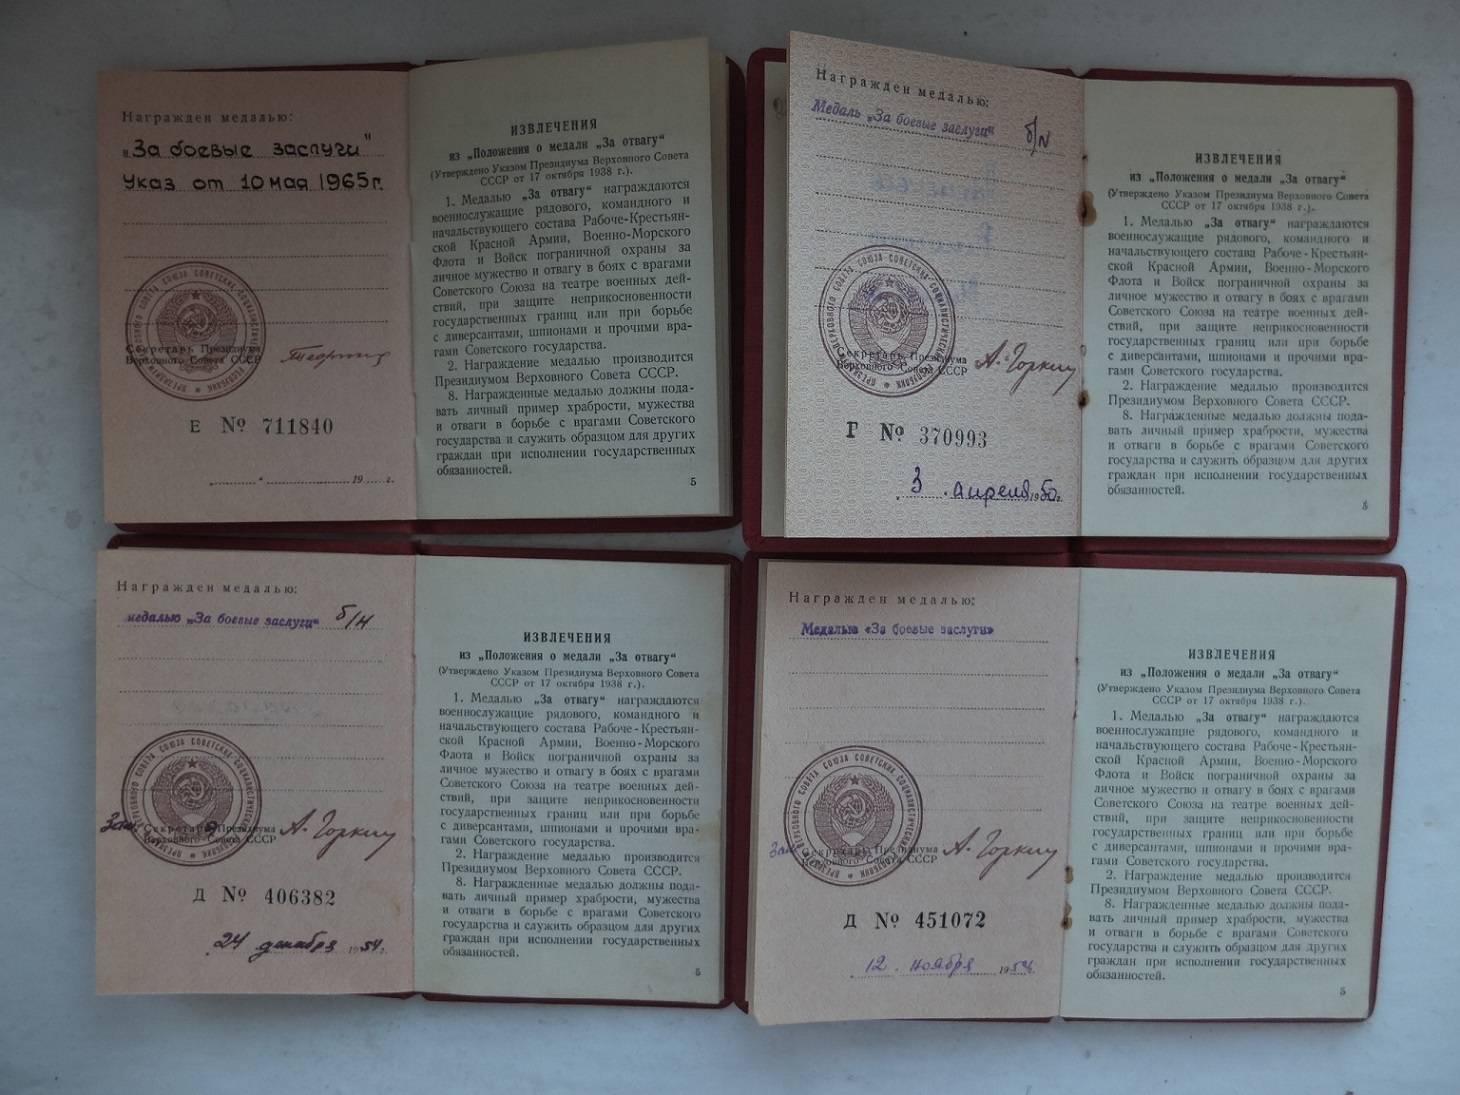 Награжден медалью:
„За боевые заслуги"
Указ от 10 мая 1965 г.
ПРЕЗИДИУМ ВЕРХОВНОГО СОВЕТА СОЮЗА СОВЕТСКИХ СОЦИАЛИСТИЧЕСКИХ РЕСПУБЛИК
Секретарь Президиума
Верховного Совета СССР
Е № 711840
19 г.
ИЗВЛЕЧЕНИЯ
из „Положения о медали „За отвагу“
(Утверждено Указом Президиума Верховного Совета
СССР от 17 октября 1938 г.).
1. Медалью „За отвагу“ награждаются
военнослужащие рядового, командного и
начальствующего состава Рабоче-Крестьян-
ской Красной Армии, Военно-Морского
Флота и Войск пограничной охраны за
личное мужество и отвагу в боях с врагами
Советского Союза на театре военных дей-
ствий, при защите неприкосновенности
государственных границ или при борьбе
с диверсантами, шпионами и прочими вра-
гами Советского государства.
2. Награждение медалью производится
Президиумом Верховного Совета СССР.
8. Награжденные медалью должны пода-
вать личный пример храбрости, мужества
и отваги в борьбе с врагами Советского
государства и служить образцом для других
граждан при исполнении государственных
обязанностей.
5
Награжден медалью:
Медаль „За боевые заслуги“ б/N
ПРЕЗИДИУМ ВЕРХОВНОГО СОВЕТА СОЮЗА СОВЕТСКИХ СОЦИАЛИСТИЧЕСКИХ РЕСПУБЛИК
Секретарь Президиума
Верховного Совета СССР
А. Горкин
Г № 370993
3 апреля 1950 г.
ИЗВЛЕЧЕНИЯ
из „Положения о медали „За отвагу“
(Утверждено Указом Президиума Верховного Совета
СССР от 17 октября 1938 г.).
1. Медалью „За отвагу“ награждаются
военнослужащие рядового, командного и
начальствующего состава Рабоче-Крестьян-
ской Красной Армии, Военно-Морского
Флота и Войск пограничной охраны за
личное мужество и отвагу в боях с врагами
Советского Союза на театре военных дей-
ствий, при защите неприкосновенности
государственных границ или при борьбе
с диверсантами, шпионами и прочими вра-
гами Советского государства.
2. Награждение медалью производится
Президиумом Верховного Совета СССР.
8. Награжденные медалью должны пода-
вать личный пример храбрости, мужества
и отваги в борьбе с врагами Советского
государства и служить образцом для других
граждан при исполнении государственных
обязанностей.
5
Награжден медалью:
медалью „За боевые заслуги“ б/н
ПРЕЗИДИУМ ВЕРХОВНОГО СОВЕТА СОЮЗА СОВЕТСКИХ СОЦИАЛИСТИЧЕСКИХ РЕСПУБЛИК
Зам. Секретарь Президиума
Верховного Совета СССР
А. Горкин
Д № 406382
24 декабря 1954 г.
ИЗВЛЕЧЕНИЯ
из „Положения о медали „За отвагу“
(Утверждено Указом Президиума Верховного Совета
СССР от 17 октября 1938 г.).
1. Медалью „За отвагу“ награждаются
военнослужащие рядового, командного и
начальствующего состава Рабоче-Крестьян-
ской Красной Армии, Военно-Морского
Флота и Войск пограничной охраны за
личное мужество и отвагу в боях с врагами
Советского Союза на театре военных дей-
ствий, при защите неприкосновенности
государственных границ или при борьбе
с диверсантами, шпионами и прочими вра-
гами Советского государства.
2. Награждение медалью производится
Президиумом Верховного Совета СССР.
8. Награжденные медалью должны пода-
вать личный пример храбрости, мужества
и отваги в борьбе с врагами Советского
государства и служить образцом для других
граждан при исполнении государственных
обязанностей.
5
Награжден медалью:
Медалью «За боевые заслуги»
ПРЕЗИДИУМ ВЕРХОВНОГО СОВЕТА СОЮЗА СОВЕТСКИХ СОЦИАЛИСТИЧЕСКИХ РЕСПУБЛИК
Зам. Секретарь Президиума
Верховного Совета СССР
А. Горкин
Д № 451072
12 ноября 195 г.
ИЗВЛЕЧЕНИЯ
из „Положения о медали „За отвагу“
(Утверждено Указом Президиума Верховного Совета
СССР от 17 октября 1938 г.).
1. Медалью „За отвагу“ награждаются
военнослужащие рядового, командного и
начальствующего состава Рабоче-Крестьян-
ской Красной Армии, Военно-Морского
Флота и Войск пограничной охраны за
личное мужество и отвагу в боях с врагами
Советского Союза на театре военных дей-
ствий, при защите неприкосновенности
государственных границ или при борьбе
с диверсантами, шпионами и прочими вра-
гами Советского государства.
2. Награждение медалью производится
Президиумом Верховного Совета СССР.
8. Награжденные медалью должны пода-
вать личный пример храбрости, мужества
и отваги в борьбе с врагами Советского
государства и служить образцом для других
граждан при исполнении государственных
обязанностей.
5